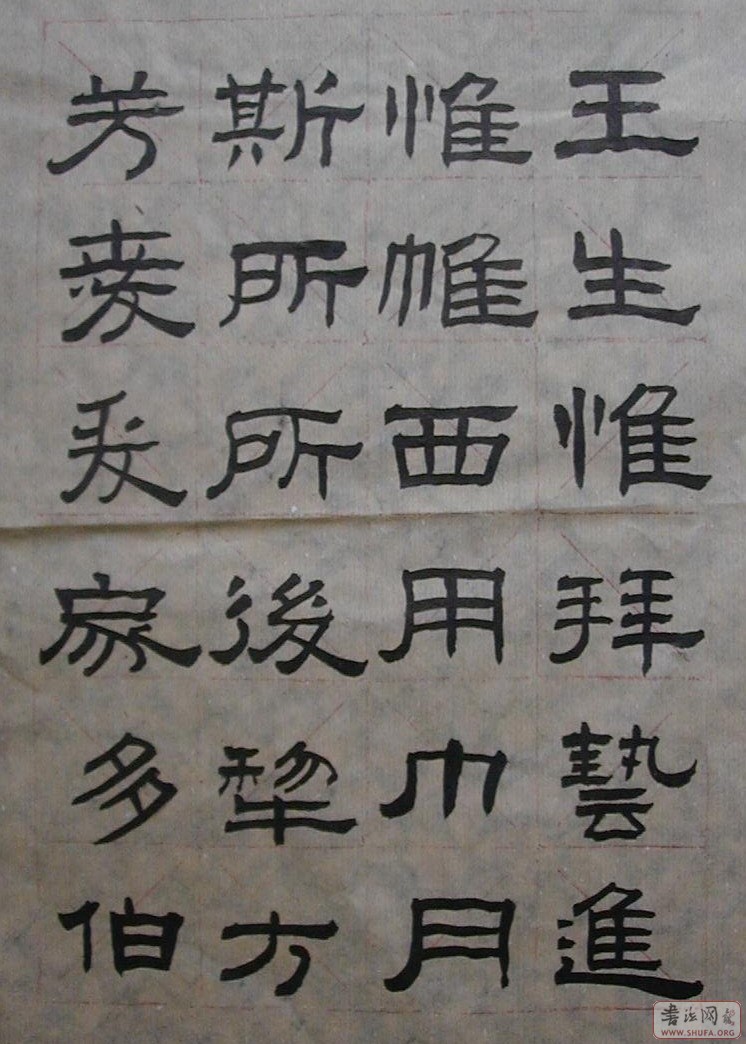 王生惟拜藝進
惟帷西用巾月
斯所所後犂方
芳家多伯
書法网
WWW.SHUFA.ORG